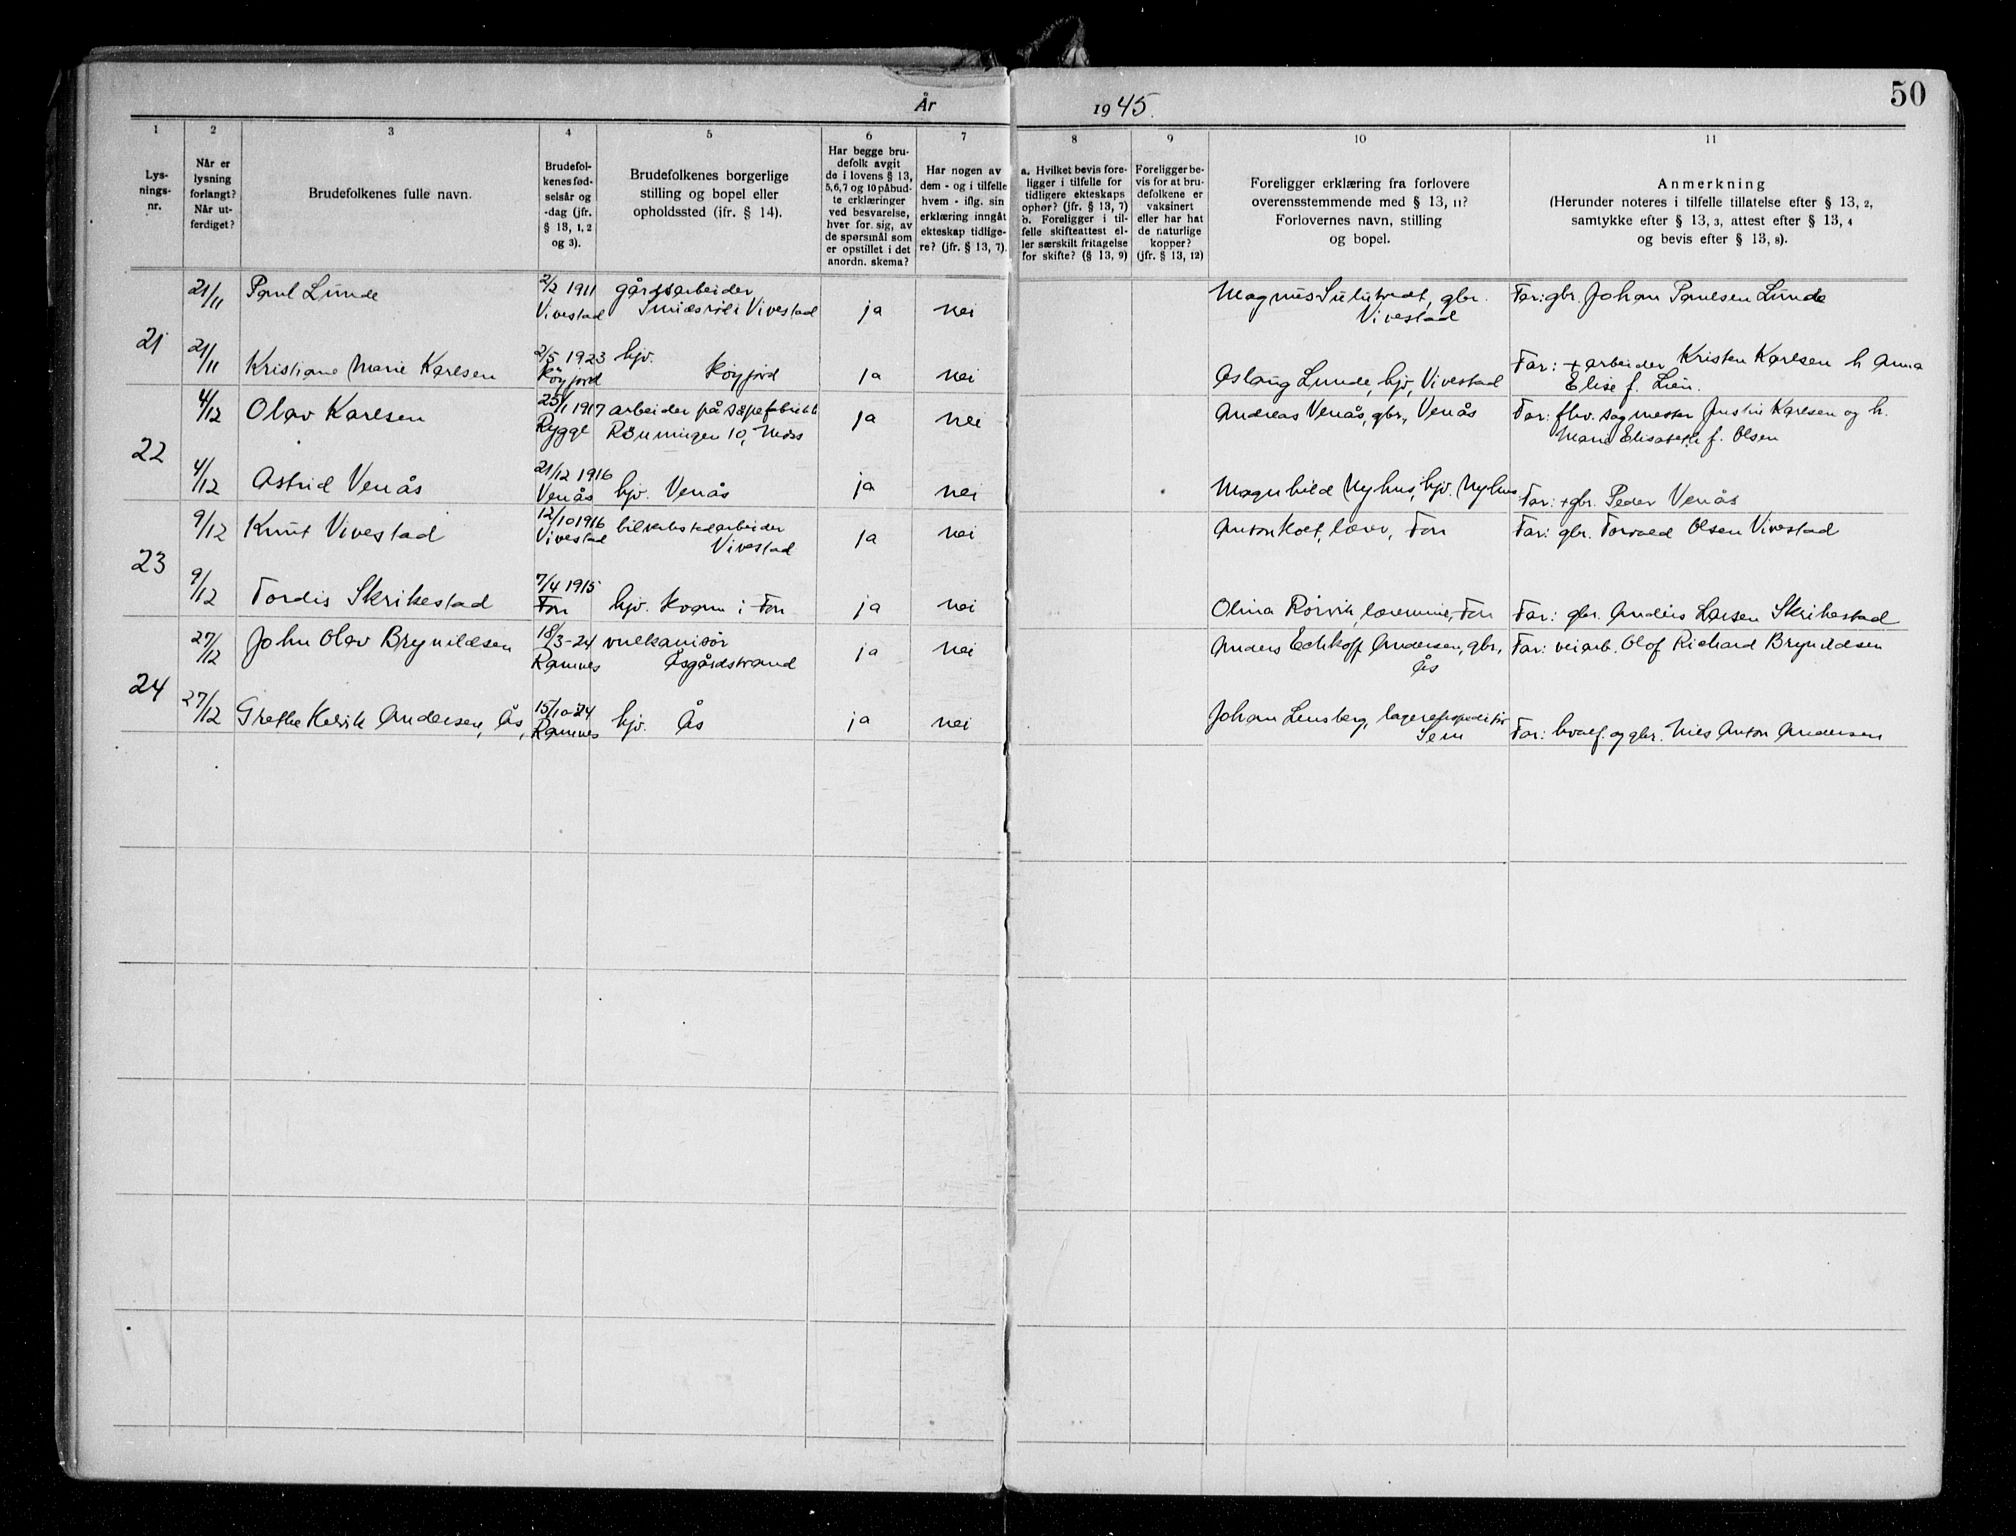 50
År 1945.
1 2 3 4 5 6 7 8 9 10 11
Lys-
nings-
nr.
Når er
lysning
forlangt?
Når ut-
ferdiget?
Brudefolkenes fulle navn.
Brudefol-
kenes fød-
selsår og
-dag (jfr.
§ 13, 1, 2
og 3).
Brudefolkenes borgerlige
stilling og bopel eller
opholdssted (jfr. § 14).
Har begge bru-
defolk avgit
de i lovens § 13,
5,6,7 og 10 påbud-
te erklæringer
ved besvarelse,
hver for sig, av
de spørsmål som
er opstillet i det
anordn. skema?
Har nogen av
dem - og i tilfelle
hvem - iflg. sin
erklæring inngåt
ekteskap tidlige-
re? (jfr. § 13, 7).
a. Hvilket bevis fore-
ligger i tilfelle for
tidligere ekteskaps
ophør? (jfr. § 13, 7)
b. Foreligger i til-
felle skifteattest el-
ler særskilt fritagelse
for skifte? (§ 13, 9)
Foreligger be-
vis for at bru-
defolkene er
vaksinert
eller har hat
de naturlige
kopper?
(jfr. § 13, 12)
Foreligger erklæring fra forlovere
overensstemmende med § 13, 11?
Forlovernes navn, stilling
og bopel.
Anmerkning
(Herunder noteres i tilfelle tillatelse efter § 13, 2,
samtykke efter § 13, 3, attest efter § 13, 4
og bevis efter § 13, 8).
21
21/11 Paul Lunde 2/2 1911 Vivestad gårdsarbeider
i Vivestad ja nei Magnus gbr.
Vivestad Far: gbr. Johan Paulsen Lunde
21/11 Kristiane Marie Karlsen 2/5 1923 Høyjord hjv.
Høyjord ja nei Aslaug Lunde, hjv, Vivestad Far: + arbeider Kristen Karlsen h Anna
Elise f. Lien.
22
4/12 Olav Karlsen 25/1 1917 Rygge arbeider på såpefabrikk
Rønningen 10, Moss ja nei Andreas Venås, gbr., Venås Far: fhv. sagmester Justin Karlsen og h.
Marie Elisabeth f. Olsen
4/12 Astrid Venås 21/12 1916 Venås hjv. Venås ja nei Magnhild Nyhus, hjv. Nyhus Far: + gbr. Peder Venås
23
9/12 Knut Vivestad 12/10 1916 Vivestad bilverkstedarbeider
Vivestad ja nei Anton Holt, lærer, Fon Far: gbr. Torvald Olsen Vivestad
9/12 Tordis Skrikestad 7/4 1915 Fon hjv. Kvarn i Fon ja nei Olina Rørvik, lærerinne, Fon Far: gbr. Anders Larsen Skrikestad
24
27/12 John Olav Brynildsen 18/3-24 Ramnes vulkanisør
Åsgårdstrand ja nei Anders Eckhoff Andersen, gbr,
Ås Far: veiarb. Olof Richard Brynildsen
27/12 Grethe Andersen, Ås, 15/10-24 Ramnes hjv. Ås ja nei Johan Lensberg, lagerekspeditør
Sem Far: hvalf. og gbr. Nils Anton Andersen